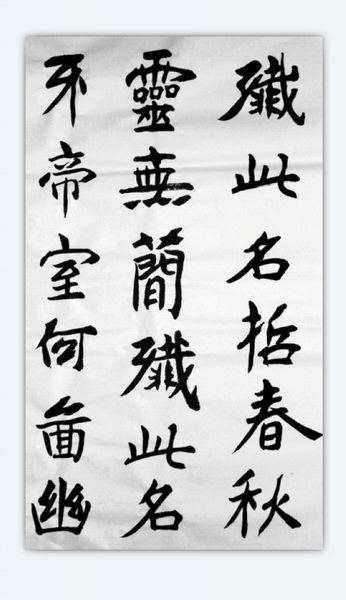 殲此名哲春秋
靈無簡殲此名
牙帝室何啚幽